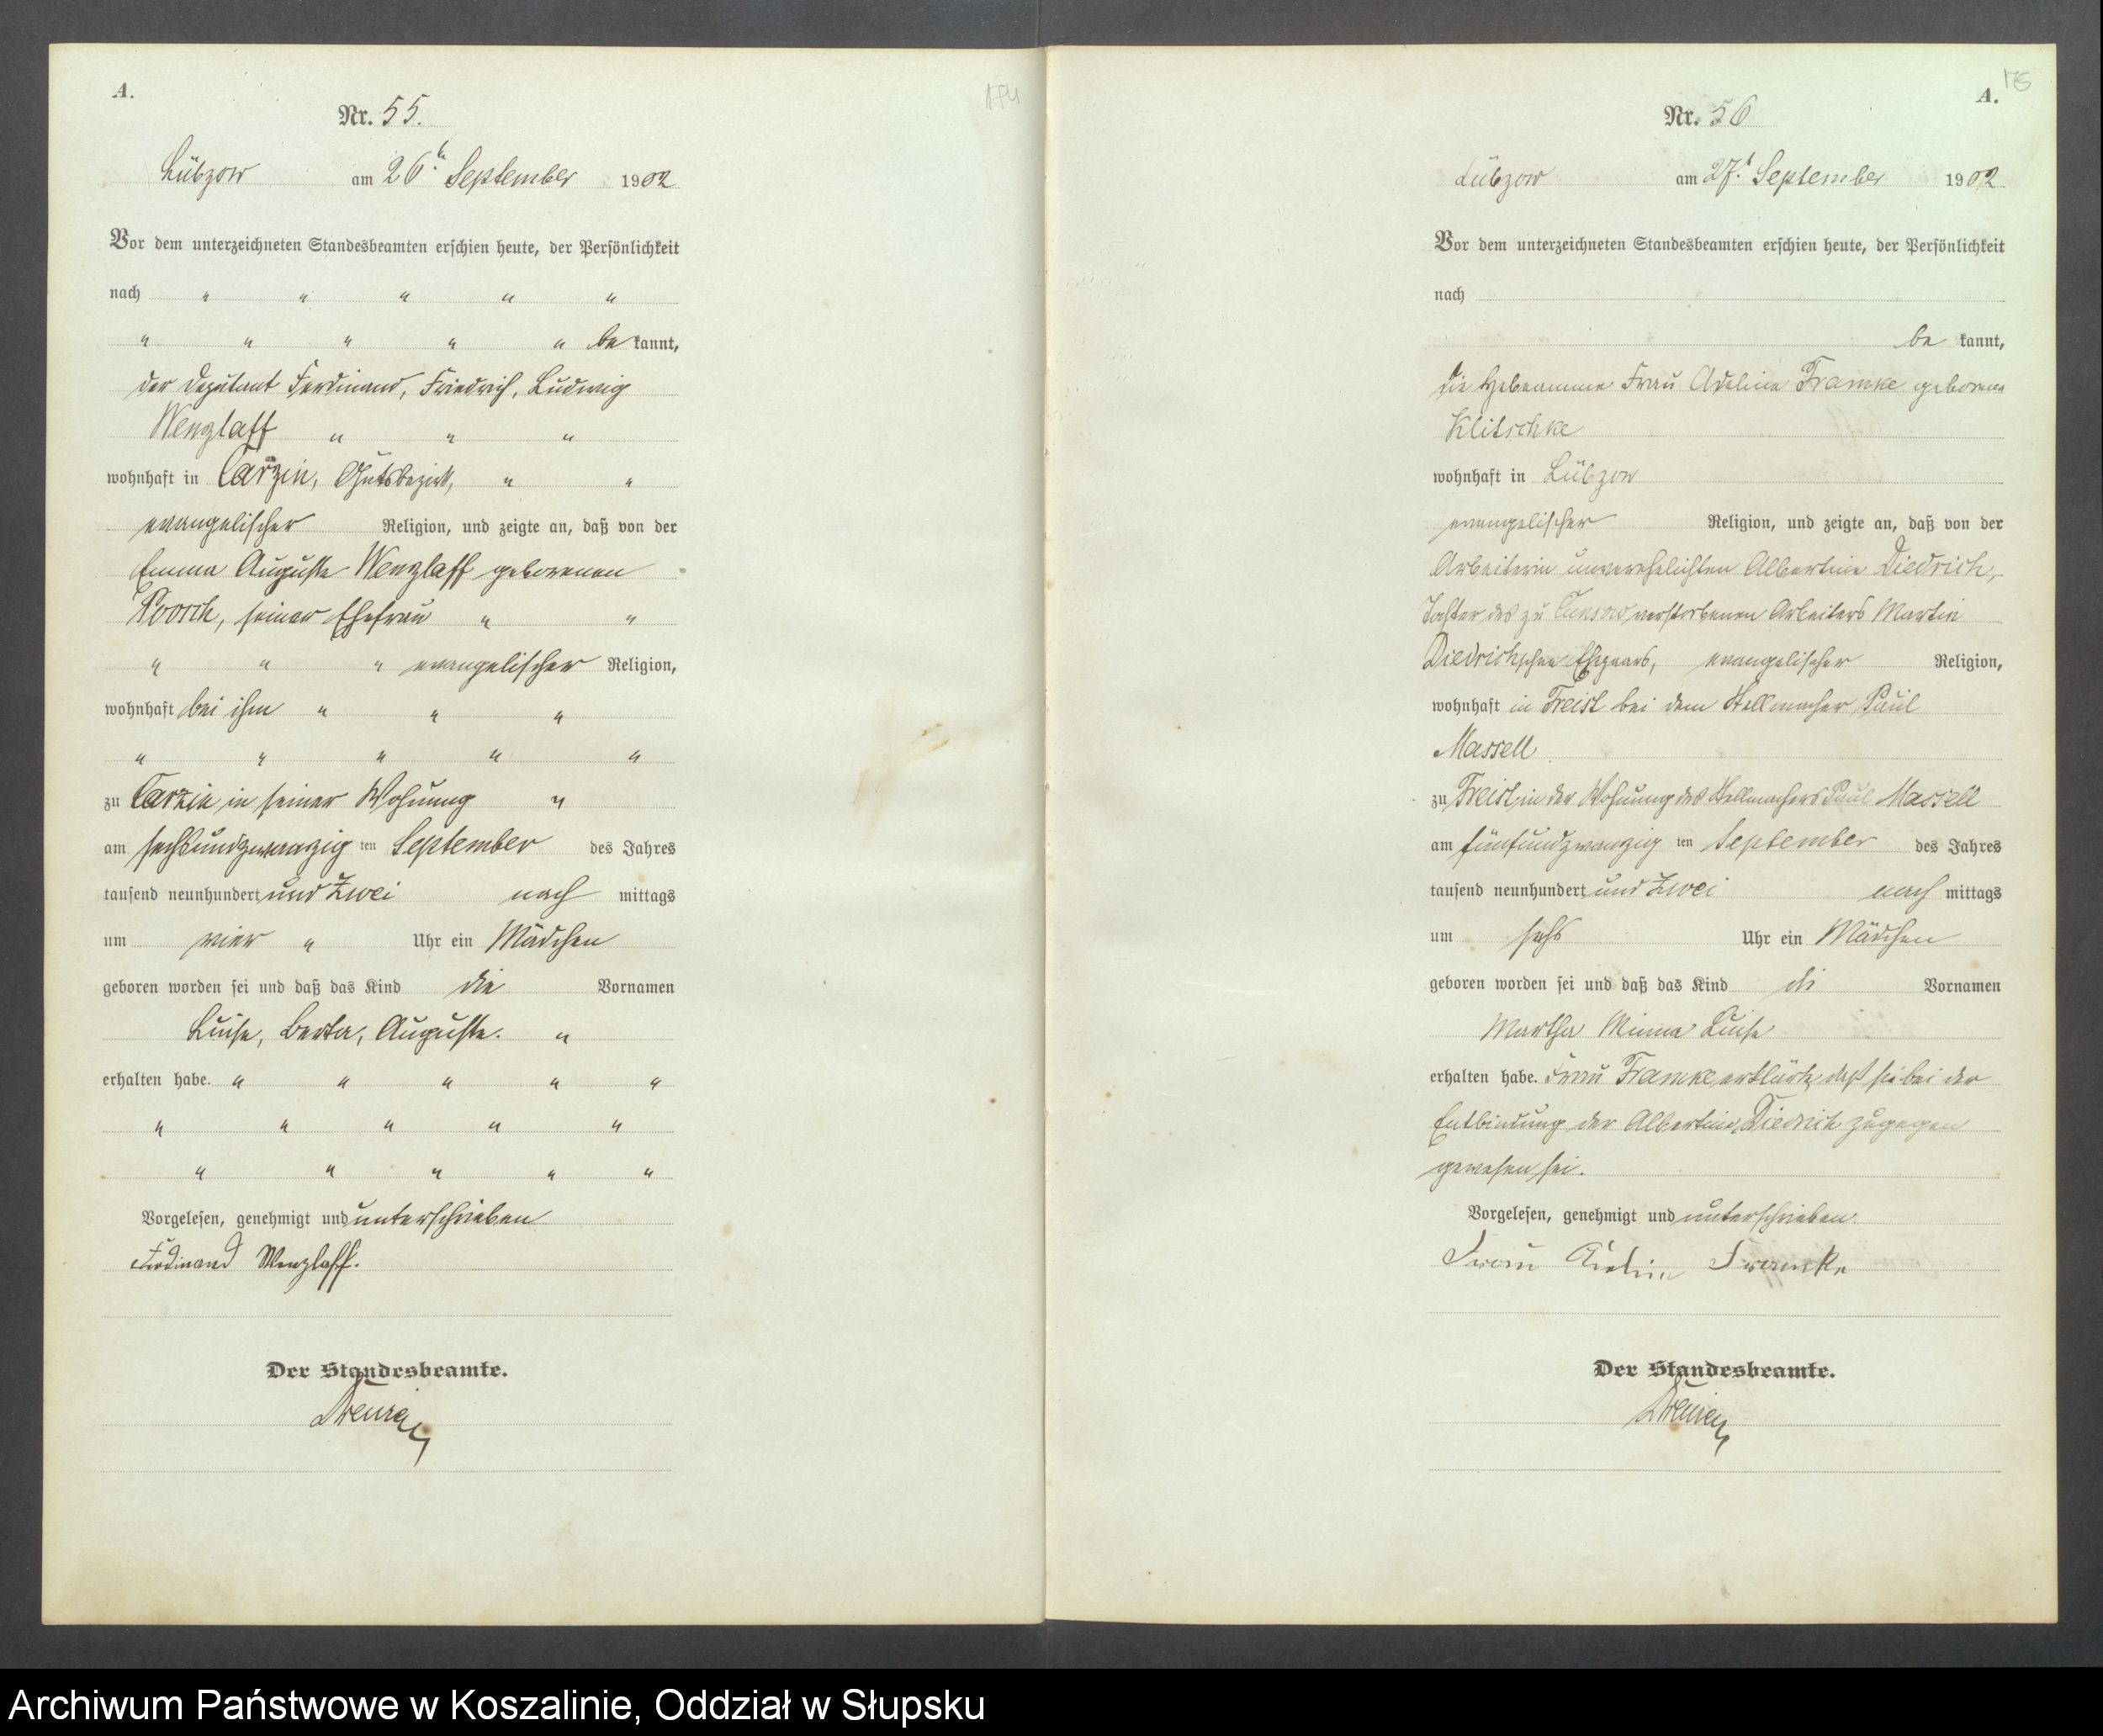 A.
Nr. 55.
Lübzow am 26t. September 1902
Vor dem unterzeichneten Standesbeamten erschien heute, der Persönlichkeit
nach " " " " "
" " " " " be kannt,
der Deputant Ferdinand, Friedrich, Ludwig
Wenzlaff " " "
wohnhaft in Carzin, Gutsbezirk, " "
evangelischer Religion, und zeigte an, daß von der
Emma Auguste Wenzlaff geborenen
Poorch, seiner Ehefrau " "
" " " evangelischer Religion,
wohnhaft bei ihm " " "
" " " " "
zu Carzin in seiner Wohnung "
am sechsundzwanzig ten September des Jahres
tausend neunhundert und Zwei nach mittags
um vier " Uhr ein Mädchen
geboren worden sei und daß das Kind die Vornamen
Luise, Berta, Auguste. "
erhalten habe. " " " " "
" " " " "
" " " " "
Vorgelesen, genehmigt und unterschrieben
Ferdinand Wenzlaff.
Der Standesbeamte.
184
175
A.
Nr. 56
Lübzow am 27t. September 1902
Vor dem unterzeichneten Standesbeamten erschien heute, der Persönlichkeit
nach
be kannt,
die Hebeamme Frau Adeline Framke geborene
Klitschke
wohnhaft in Lübzow
evangelischer Religion, und zeigte an, daß von der
Arbeiterin unverehelichten Albertine Diedrich,
Tochter des zu verstorbenen Arbeiters Martin
Diedrichschen Ehepaars, evangelischer Religion,
wohnhaft in Freist bei dem Stellmacher Paul
Massell
zu Freist in der Wohnung des Stellmachers Paul Massell
am fünfundzwanzig ten September des Jahres
tausend neunhundert und Zwei nach mittags
um sechs Uhr ein Mädchen
geboren worden sei und daß das Kind die Vornamen
Martha Minna Luise
erhalten habe. Frau Framke erklärte, daß sie bei der
Entbindung der Albertine Diedrich zugegen
gewesen sei.
Vorgelesen, genehmigt und unterschrieben.
Frau Adeline Framke
Der Standesbeamte.
Archiwum Państwowe w Koszalinie, Oddział w Słupsku